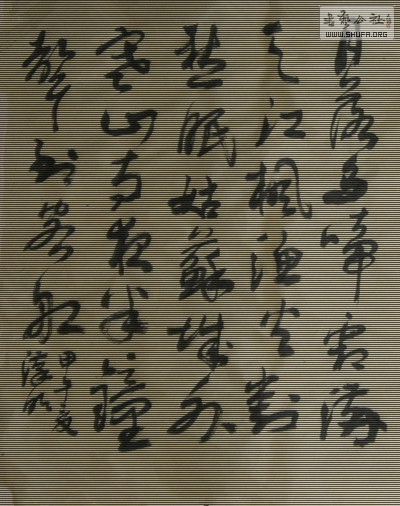 月落乌啼霜满
天江枫渔火对
愁眠姑苏城外
寒山寺夜半钟
声到客船
甲午夏
书艺公社
WWW.SHUFA.ORG